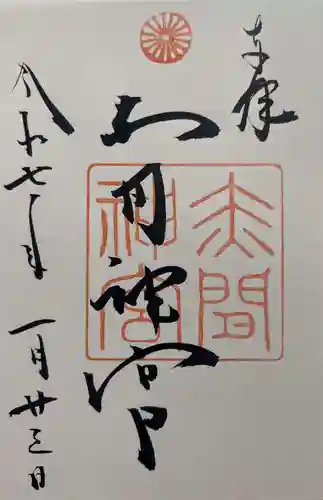 奉拝
赤間神宮
赤間
神宮
令和七年
一月廿三日